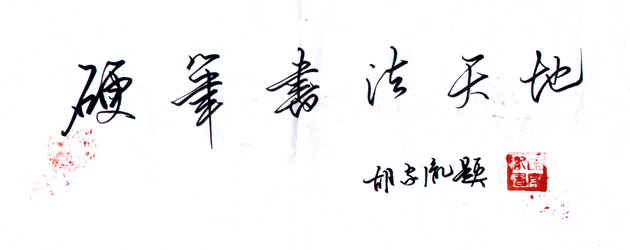 硬筆書法天地
胡胤題